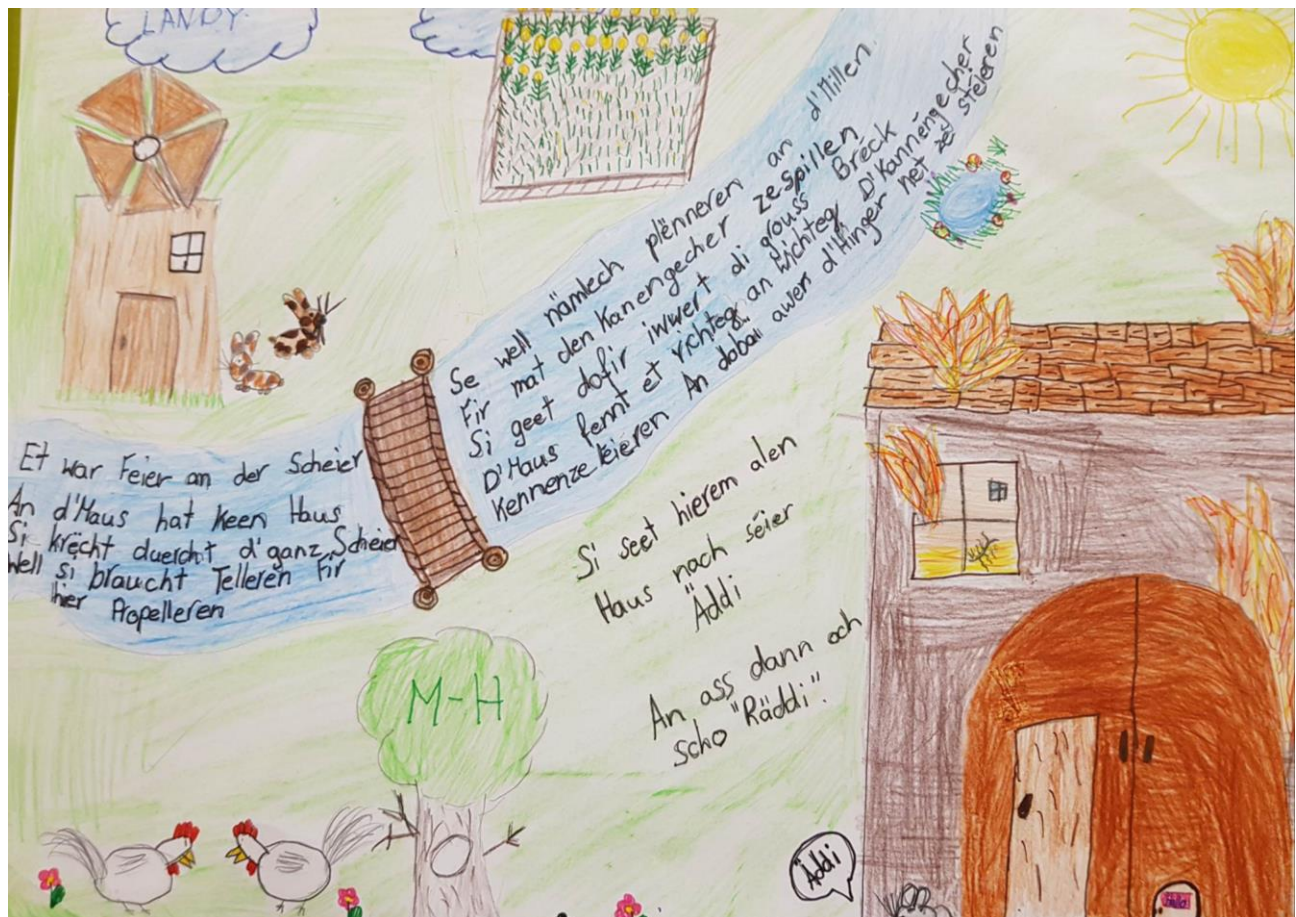 LANDY
Et war Feier an der Scheier
An d'Maus hat keen Haus
Si krëcht duercht d'ganz Scheier
Well si braucht Telleren Fir
hier Propelleren
Se well nämlech plënneren an d'Millen
Fir mat den Kanengecher ze spillen
Si geet dofir iwwert di grouss Bréck
D'Maus fennt et richteg an wichteg D'Kannéngecher
Kennenze léieren An dobäi awer d'Hinger net ze steieren
Si seet hierem alen
Haus nach séier
Äddi
An ass dann och
scho "Räddi".
M-H
Äddi